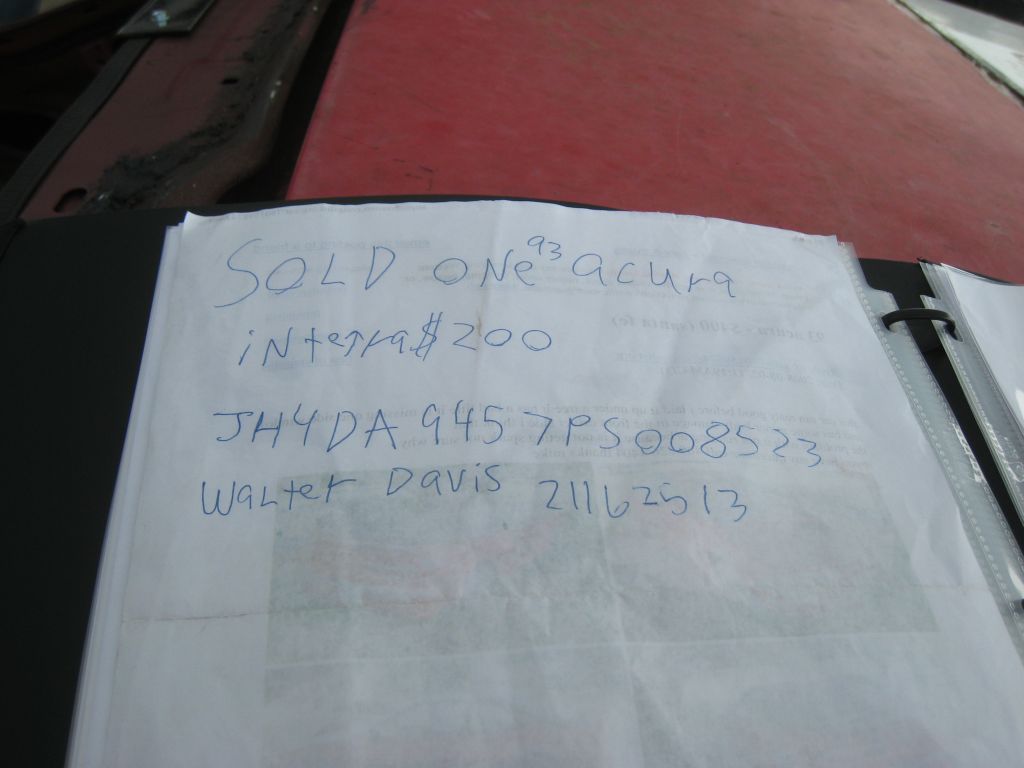 SOLD ONe 93 acura
iNtegra $200
JH4DA9457PS008523
Walter Davis 21162513